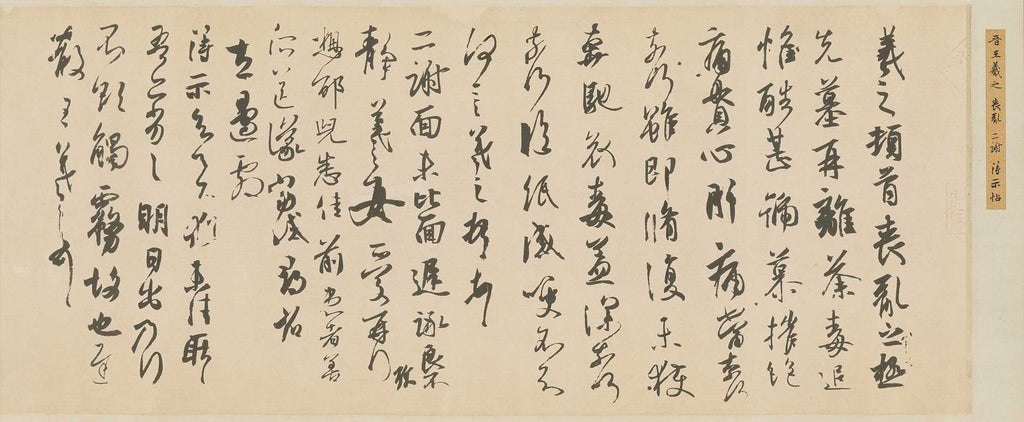 晉王羲之 喪亂 二謝 得示帖
羲之頓首喪亂之極
先墓再離荼毒追
惟酷甚號慕摧絕
痛貫心肝痛當奈何
奈何雖即脩復未獲
奔馳哀毒益深奈何
奈何臨紙感哽不知
何言羲之頓首頓首
二謝面未比面遲詠良不
靜 羲之女愛再拜
想邵兒悉佳前患者善
所送議當試尋省
左邊劇
得示知足下猶未佳耿耿
吾亦劣劣明日出乃行
不欲觸霧故也遲
散王羲之頓首